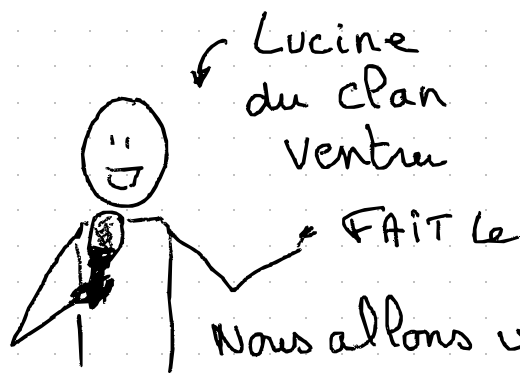 Lucine
du clan
ventru
FAIT Le
Nous allons